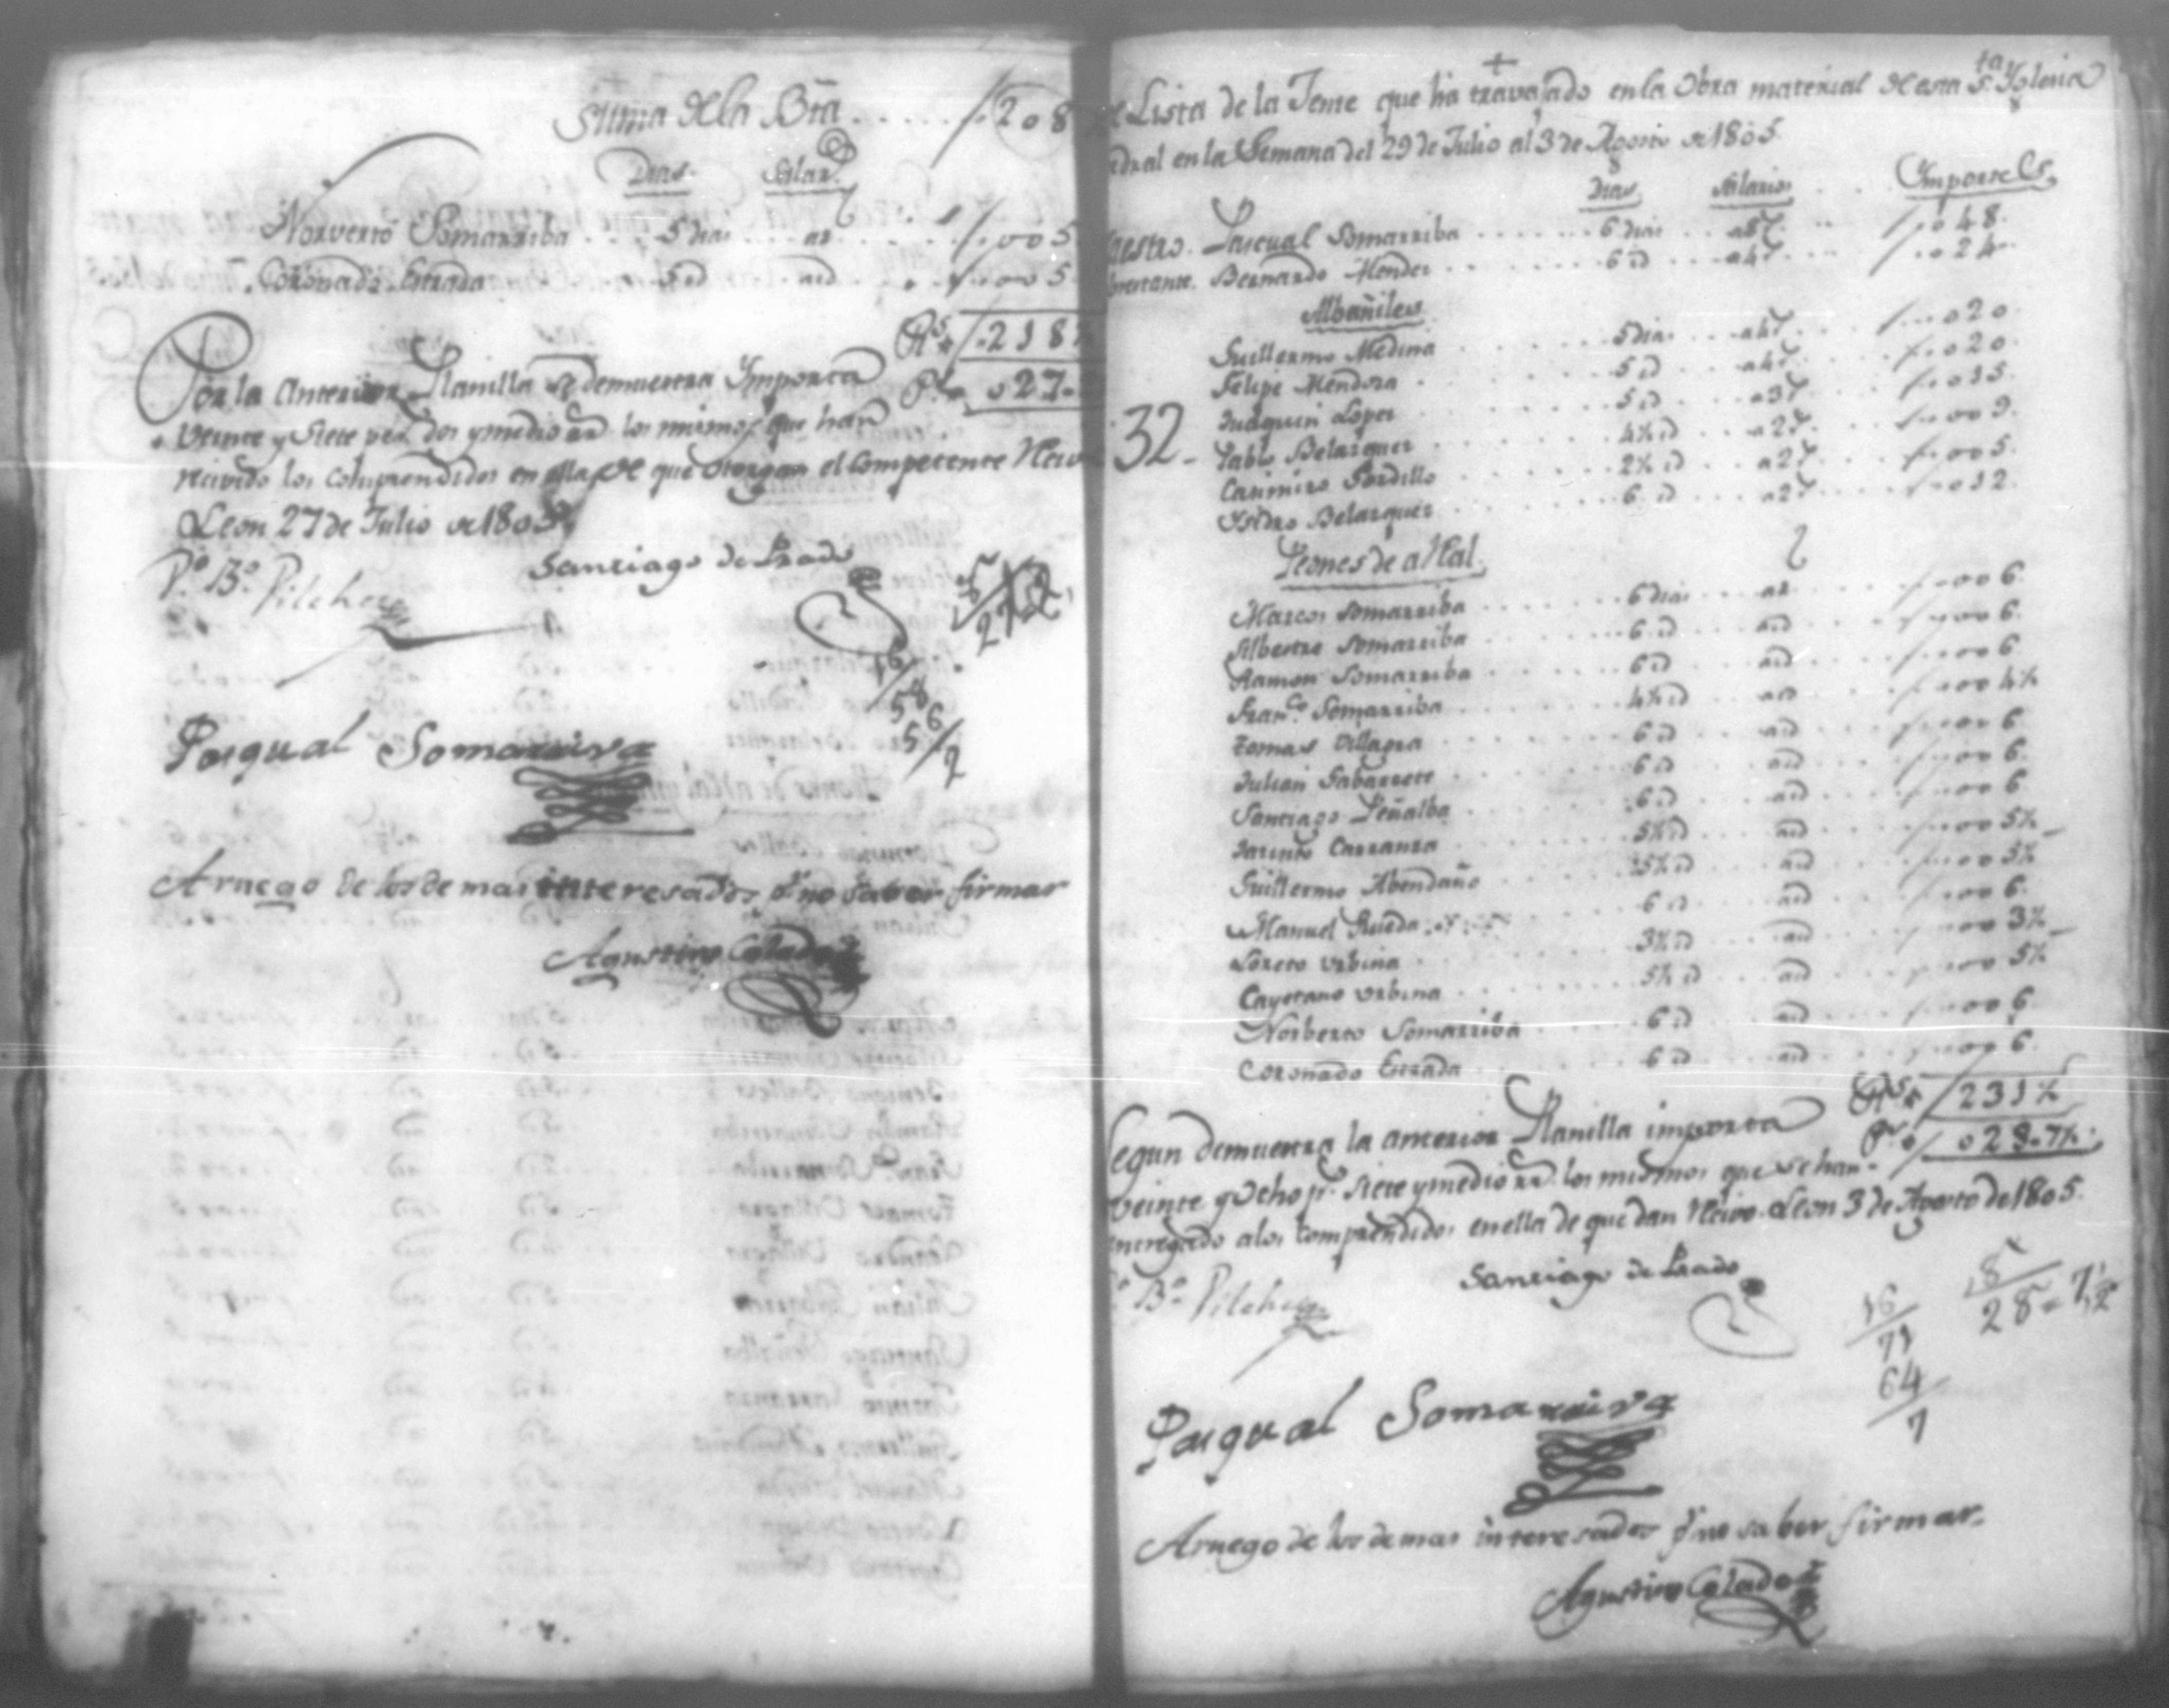 Suma de la Bta ..... /.208
Dias Salar.
Norverto Somarriba .... 5 dias .... a1 ...... /..005
Coronado Estrada ..... 5 id .... a id .... /..005
Rs /.218
Por la Anterior Planilla se demuestra Importa Ps 027.
Veinte y siete pes. dos y medio rr. los mismos que han
recivido los comprendidos en ella, de que otorgan el competente Recivo
Leon 27 de Julio de 1805,,
Vo. Bo. Pilcher
Santiago de Prado
16/
58
56/
2
Pasqual Somarriva
A ruego de los demas interesados, pr. no saber firmar
Agustin Calado
+
Lista de la Jente que ha travajado en la Obra material de esta Sta. Yglesia
edral en la Semana del 29 de Julio al 3 de Agosto de 1805
Dias Salarios Importe Rs.
aestro. Pascual Somarriba ...... 6 dias .. a 8r. .. /..048.
Bernardo Mendes ....... 6 id .. a 4r. ... /..024
Albañiles
Guillermo Medina ...... 5 dias ... a 4r. ... /...020
Felipe Mendoza ...... 5 id ... a 4r. .... /...020
Juaquin Lopez ...... 5 id ... a 3r. .... /...015.
32. Pablo Belazquez ...... 4½ id ... a 2r. .... /...009.
Casimiro Gordillo ...... 2½ id ... a 2r. .... /...005.
Ysidro Belazquez ...... 6 id ... a 2r. .... /...012.
Peones de a Real
Marcos Somarriba ..... 6 dias ... a1 .... /....006.
Albertro Somarriba ..... 6 id ... a id .... /....006.
Ramon Somarriba ..... 6 id ... a id .... /....006
Franco. Somarriba ..... 4½ id ... a id .... /....004½
Tomas Villagra ..... 6 id ... a id .... /....006.
Julian Gabarrete ..... 6 id ... a id .... /....006.
Santiago Peñalba ..... 6 id ... a id .... /....006
Jacinto Carranza ..... 5½ id ... a id .... /....005½
Guillermo Abendaño ..... 5½ id ... a id .... /....005½
Manuel Rueda ..... 6 id ... a id .... /....006.
Loreto Urbina ..... 3½ id ... a id .... /....003½
Cayetano Urbina ..... 5½ id ... a id .... /....005½
Norberto Somarriba ..... 6 id ... a id .... /....006.
Coronado Estrada ..... 6 id ... a id .... /....006.
Rs /231½
egun demuestra la anterior Planilla importa Ps /028.7½.
Veinte y Ocho ps. siete y medio rr. los mismos que se han
entregado a los comprendidos en ella de que dan Recivo. Leon 3 de Agosto de 1805.
Bo. Pilcher
Santiago de Prado
8
28=7½
16/
71
64/
7
Pasqual Somarriva
A ruego de los demas interesados pr. no saber firmar.
Agustin Calado